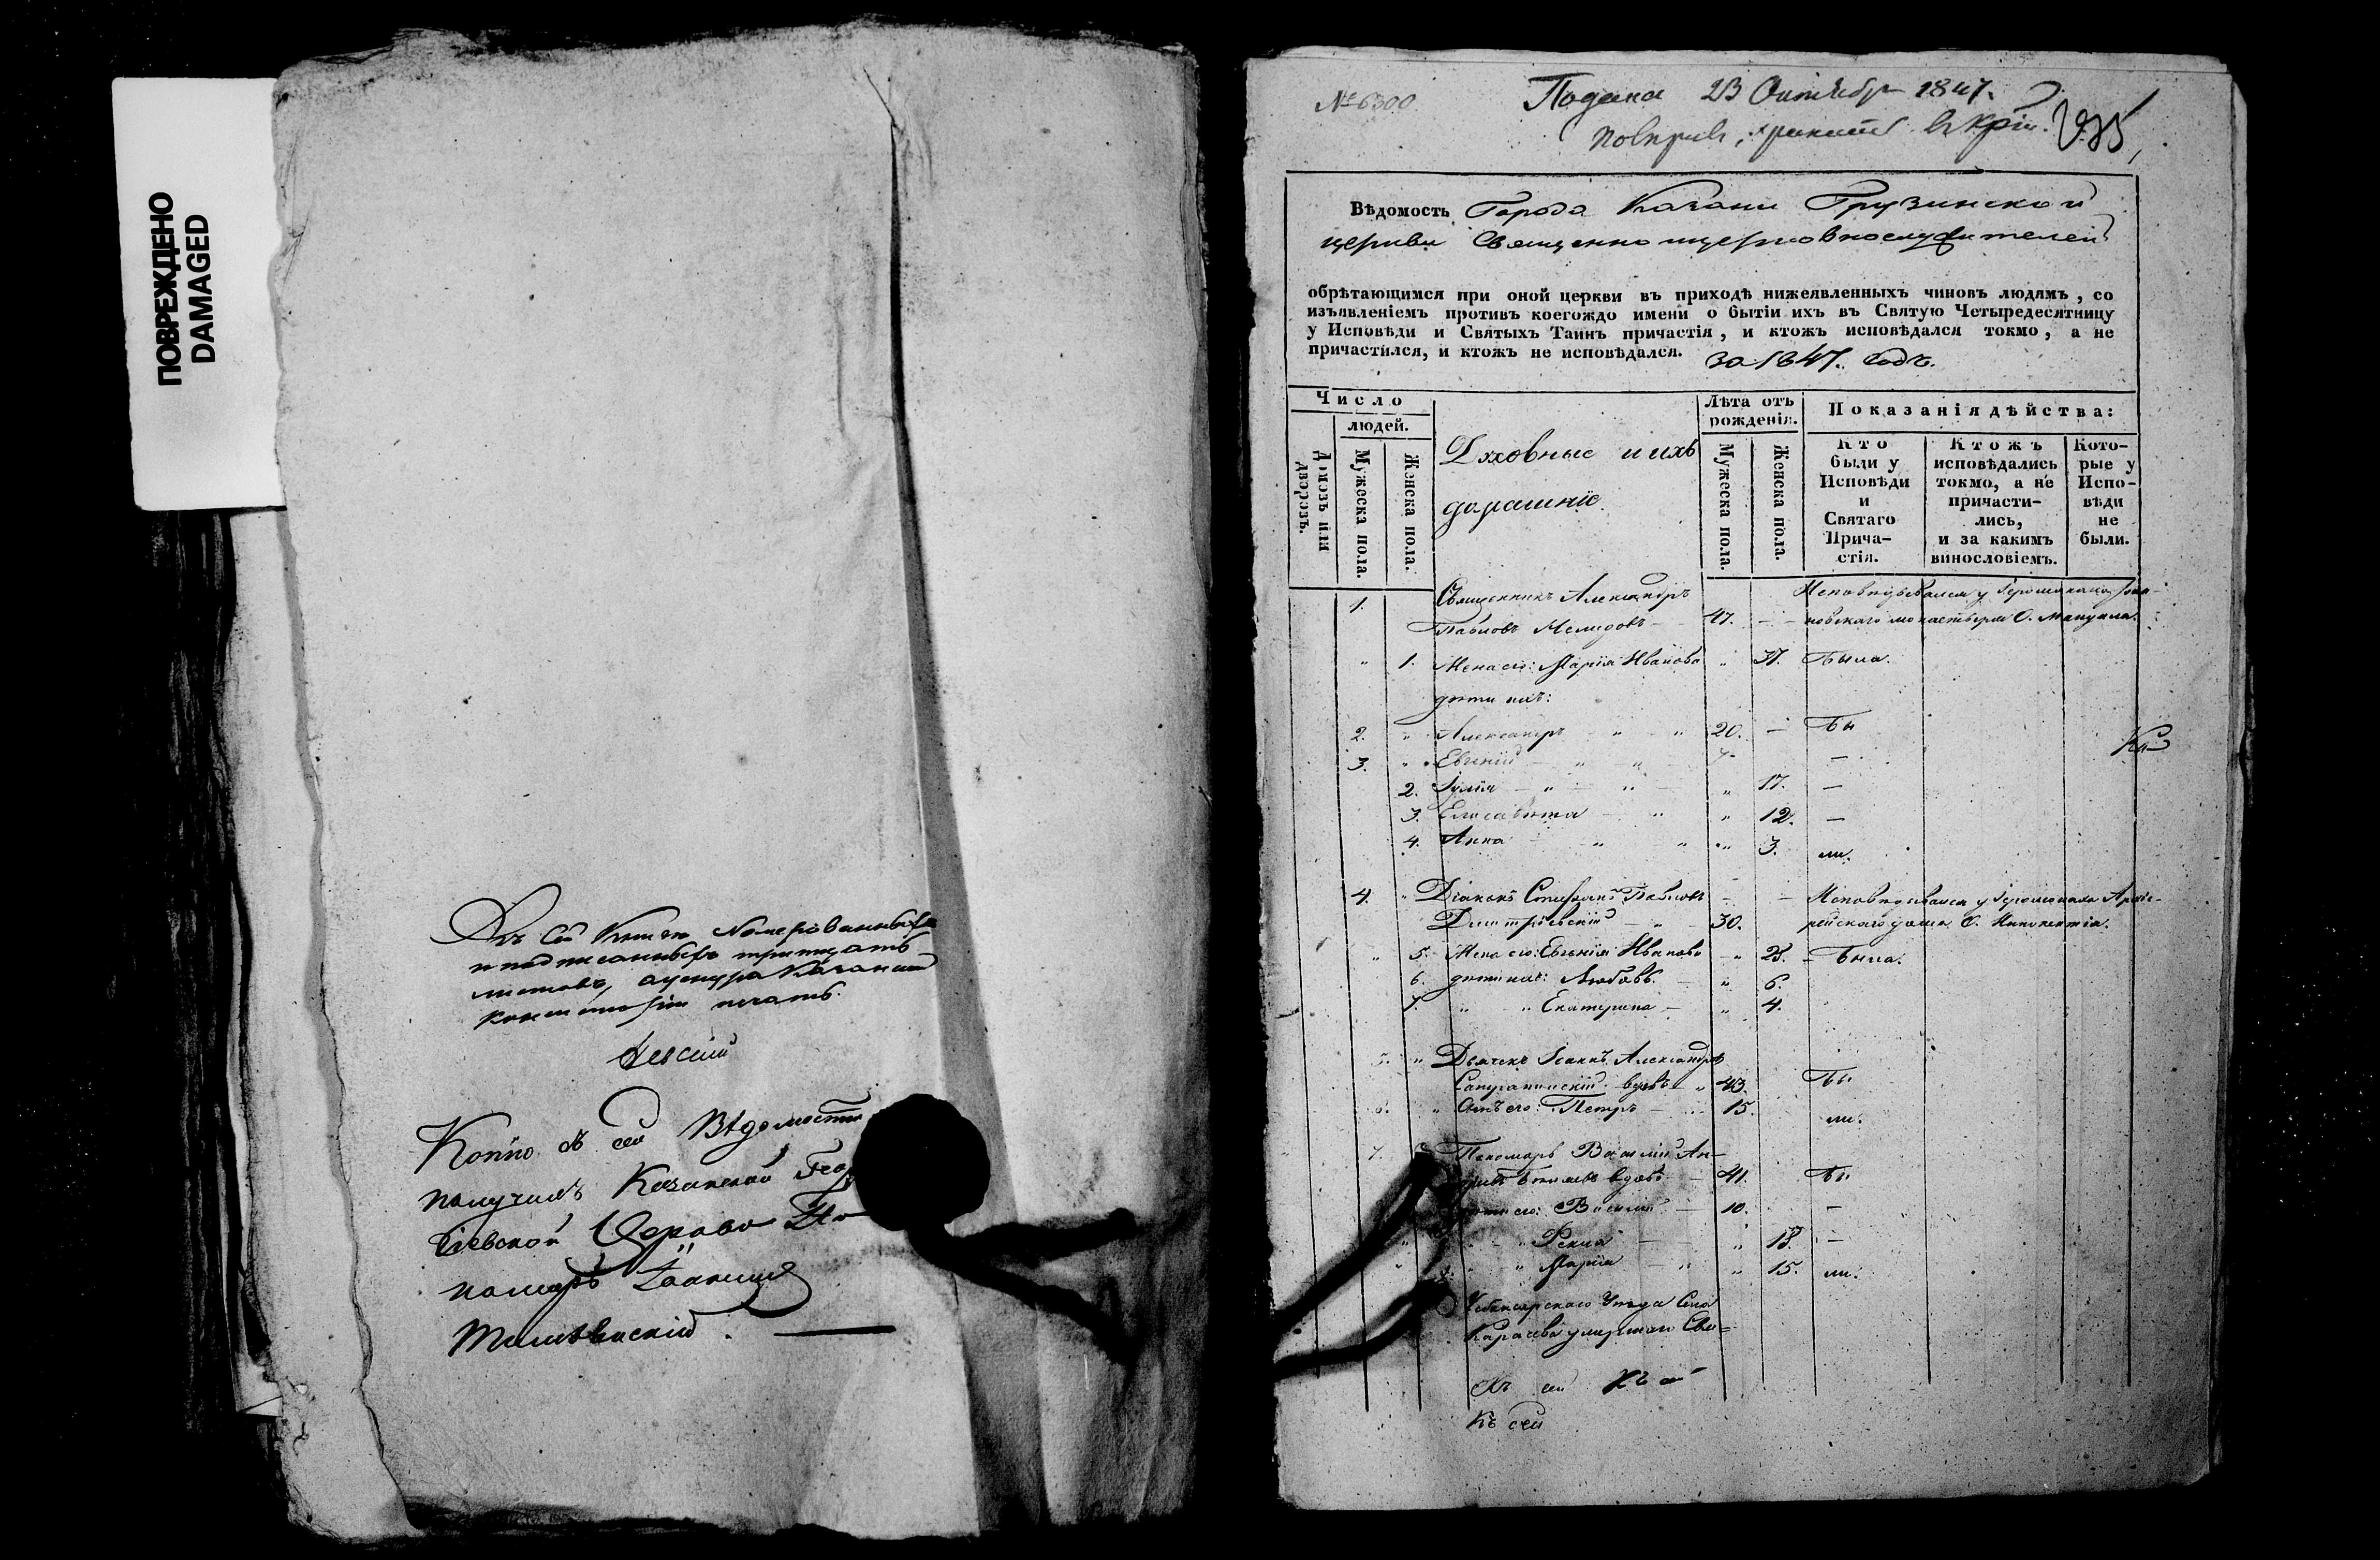 ПОВРЕЖДЕНО
DAMAGED
Въ сей Книгѣ Номерованныхъ
и подписанныхъ тритцать
листовъ, Казанской
Консисторіи печать.
Копію съ сей Вѣдомости
получилъ Казанской Геор
гіевской Церкви По
номарь Іоаннъ
№ 6300.
Подана 23 Октября 1847.
Вѣдомость Города Казани Грузинской
церкви Священно и церковнослужителей
обрѣтающимся при оной церкви въ приходѣ нижеявленныхъ чиновъ людямъ, со
изъявленіемъ противъ коегождо имени о бытіи ихъ въ Святую Четыредесятницу
у Исповѣди и Святыхъ Таинъ причастія, и ктожъ исповѣдался токмо, а не
причастился, и ктожъ не исповѣдался. за 1847. годъ.
Число
людей.
Домовъ или дворовъ.
Мужеска пола.
Женска пола.
Духовные и ихъ
домашніе.
Лѣта отъ
рожденія.
Мужеска пола.
Женска пола.
Показанія дѣйства:
Кто
были у
Исповѣди
и
Святаго
Прича-
стія.
Ктожъ
исповѣдались
токмо, а не
причасти-
лись,
и за какимъ
винословіемъ.
Кото-
рые у
Испо-
вѣди
не
были.
1. Священникъ Александръ Исповѣдывался у Іеромонаха
Павловъ 47. — новскаго монастыря О.
" 1. Жена его: Марія Иванова " 37. Была.
дѣти ихъ:
2. " Александръ " " 20. — Бы
3. " Евгеній — " " 7. —
2. Іулія — " — " — " 17. —
3. Елисавета — " " 12. —
4. Анна " " " 3. ли.
4. " Діаконъ Стефанъ Павловъ — — Исповѣдывался у Іеромонаха Архіе-
Дмитріевскій — 30. рейскаго дома О. Иннокентія.
" 5. Жена его: Евгенія Иванова " 25. Была.
6. дѣти ихъ: Любовь. — " 6.
7. " " Екатерина — " 4.
5. " Дьячекъ Іоаннъ Александровъ
вдовъ " 43. Бы
6. " Сынъ его: Петръ — 15. ли.
7. Пономарь Василій Ан-
вдовъ — 41. Бы
дѣти его: Василій — 10. —
" " 18. —
" " Марія — " " 15. ли.
Чебоксарскаго Уѣзда Села
Карачева умершаго Свя=
Къ сей Къ с
Къ сей